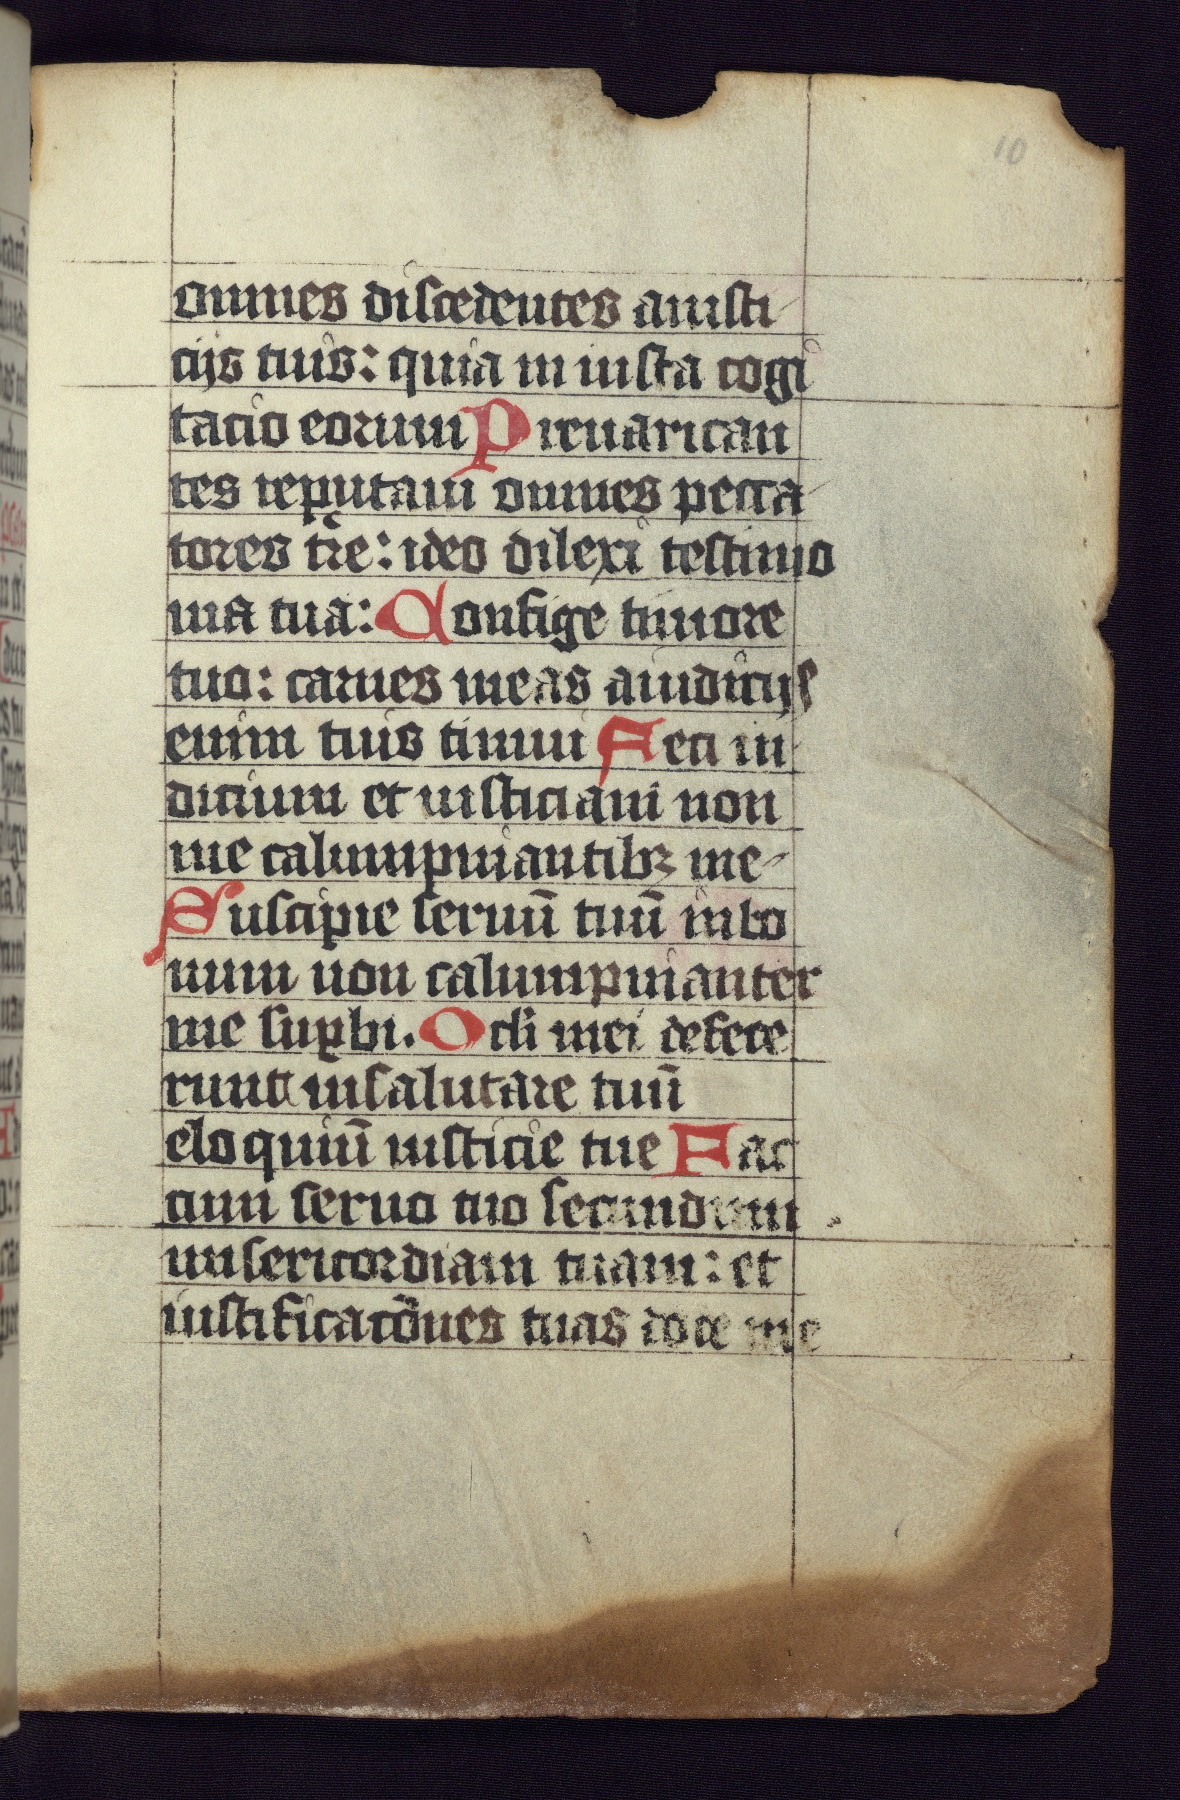 10
omnes discedentes aiusti
cijs tuis: quia in iusta cogi
tacio eorum Preuarican
tes reputaui omnes pecca
tores tr̄e: ideo dilexi testimo
nia tua: Confige timore
tuo: carnes meas aiudicijs
enim tuis timui Feci iu
dicium et iusticiam non
me calumpniantibꝫ me
Suscipie seruū tuū inbo
num non calumpnianter
me suꝑbi. Ocli mei defece
runt insalutare tuū
eloquiū iusticie tue Fac
cum seruo tuo secundum
misericordiam tuam: et
iustificacōnes tuas doce me